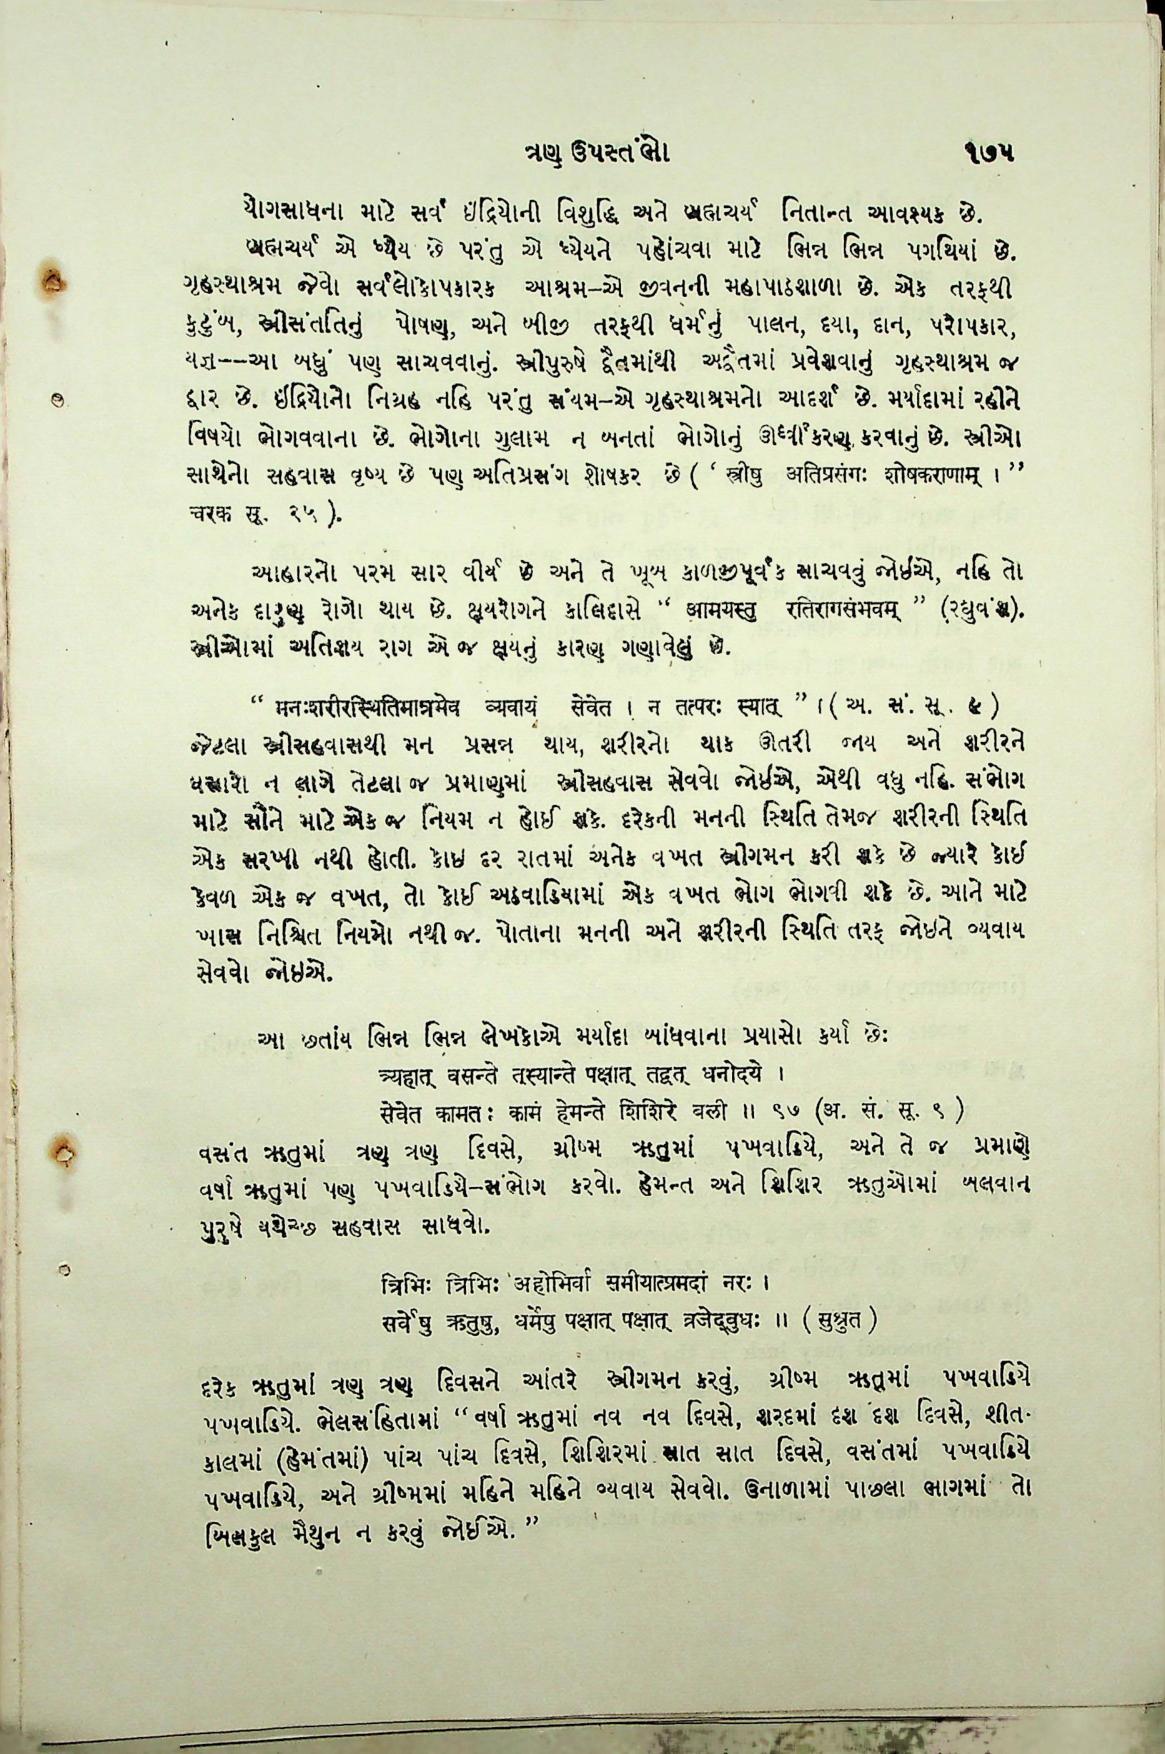 ત્રણ ઉપસ્તંભો ૧૭૫
યોગસાધના માટે સર્વ ઇંદ્રિયોની વિશુદ્ધિ અને બ્રહ્મચર્ય નિતાન્ત આવશ્યક છે.
બ્રહ્મચર્ય એ ધ્યેય છે પરંતુ એ ધ્યેયને પહોંચવા માટે ભિન્ન ભિન્ન પગથિયાં છે.
ગૃહસ્થાશ્રમ જેવો સર્વલોકોપકારક આશ્રમ–એ જીવનની મહાપાઠશાળા છે. એક તરફથી
કુટુંબ, સ્ત્રીસંતતિનું પોષણ, અને બીજી તરફથી ધર્મનું પાલન, દયા, દાન, પરોપકાર,
યજ્ઞ--આ બધું પણ સાચવવાનું. સ્ત્રીપુરુષે દ્વૈતમાંથી અદ્વૈતમાં પ્રવેશવાનું ગૃહસ્થાશ્રમ જ
દ્વાર છે. ઇંદ્રિયોનો નિગ્રહ નહિ પરંતુ સંયમ–એ ગૃહસ્થાશ્રમનો આદર્શ છે. મર્યાદામાં રહીને
વિષયો ભોગવવાના છે. ભોગોના ગુલામ ન બનતાં ભોગોનું ઊર્ધ્વીકરણ કરવાનું છે. સ્ત્રીઓ
સાથેનો સહવાસ વૃષ્ય છે પણ અતિપ્રસંગ શોષકર છે ( ‘ स्त्रीषु अतिप्रसंगः शोषकराणाम् । ”
ચરક સૂ. ૨૫ ).
આહારનો પરમ સાર વીર્ય છે અને તે ખૂબ કાળજીપૂર્વક સાચવવું જોઇએ, નહિ તો
અનેક દારુણ રોગો થાય છે. ક્ષયરોગને કાલિદાસે “ आमयस्तु रतिरागसंभवम् ” (રઘુવંશ).
સ્ત્રીઓમાં અતિશય રાગ એ જ ક્ષયનું કારણ ગણાવેલું છે.
“ मनःशरीरस्थितिमात्रमेव व्यवायं सेवेत । न तत्परः स्यात् ” । ( અ. સં. સૂ. ૯ )
જેટલા સ્ત્રીસહવાસથી મન પ્રસન્ન થાય, શરીરનો થાક ઊતરી જાય અને શરીરને
ઘસારો ન લાગે તેટલા જ પ્રમાણમાં સ્ત્રીસહવાસ સેવવો જોઇએ, એથી વધુ નહિ. સંભોગ
માટે સૌને માટે એક જ નિયમ ન હોઈ શકે. દરેકની મનની સ્થિતિ તેમજ શરીરની સ્થિતિ
એક સરખી નથી હોતી. કોઇ દર રાતમાં અનેક વખત સ્ત્રીગમન કરી શકે છે જ્યારે કોઈ
કેવળ એક જ વખત, તો કોઈ અઠવાડિયામાં એક વખત ભોગ ભોગવી શકે છે. આને માટે
ખાસ નિશ્ચિત નિયમો નથી જ. પોતાના મનની અને શરીરની સ્થિતિ તરફ જોઇને વ્યવાય
સેવવો જોઇએ.
આ છતાંય ભિન્ન ભિન્ન લેખકોએ મર્યાદા બાંધવાના પ્રયાસો કર્યા છે:
त्र्यहात् वसन्ते त्स्यान्ते पक्षात् तद्वत् धनोदये ।
सेवेत कामतः कामं हेमन्ते शिशिरे वली ॥ ९७ (अ. सं. सू. ९ )
વસંત ઋતુમાં ત્રણ ત્રણ દિવસે, ગ્રીષ્મ ઋતુમાં પખવાડિયે, અને તે જ પ્રમાણે
વર્ષા ઋતુમાં પણ પખવાડિયે–સંભોગ કરવો. હેમન્ત અને શિશિર ઋતુઓમાં બલવાન
પુરુષે યથેચ્છ સહવાસ સાધવો.
त्रिभिः त्रिभिः अहोभिर्वा समीयात्प्रमदां नरः ।
सर्वेषु ऋतुषु, धर्मेषु पक्षात् पक्षात् व्रजेद्बुधः ॥ ( सुश्रुत )
દરેક ઋતુમાં ત્રણ ત્રણ દિવસને આંતરે સ્ત્રીગમન કરવું, ગ્રીષ્મ ઋતૃમાં પખવાડિયે
પખવાડિયે. ભેલસંહિતામાં “ વર્ષા ઋતુમાં નવ નવ દિવસે, શરદમાં દશ દશ દિવસે, શીત-
કાલમાં (હેમંતમાં) પાંચ પાંચ દિવસે, શિશિરમાં સાત સાત દિવસે, વસંતમાં પખવાડિયે
પખવાડિયે, અને ગ્રીષ્મમાં મહિને મહિને વ્યવાય સેવવો. ઉનાળામાં પાછલા ભાગમાં તો
બિલકુલ મૈથુન ન કરવું જોઈએ. ”